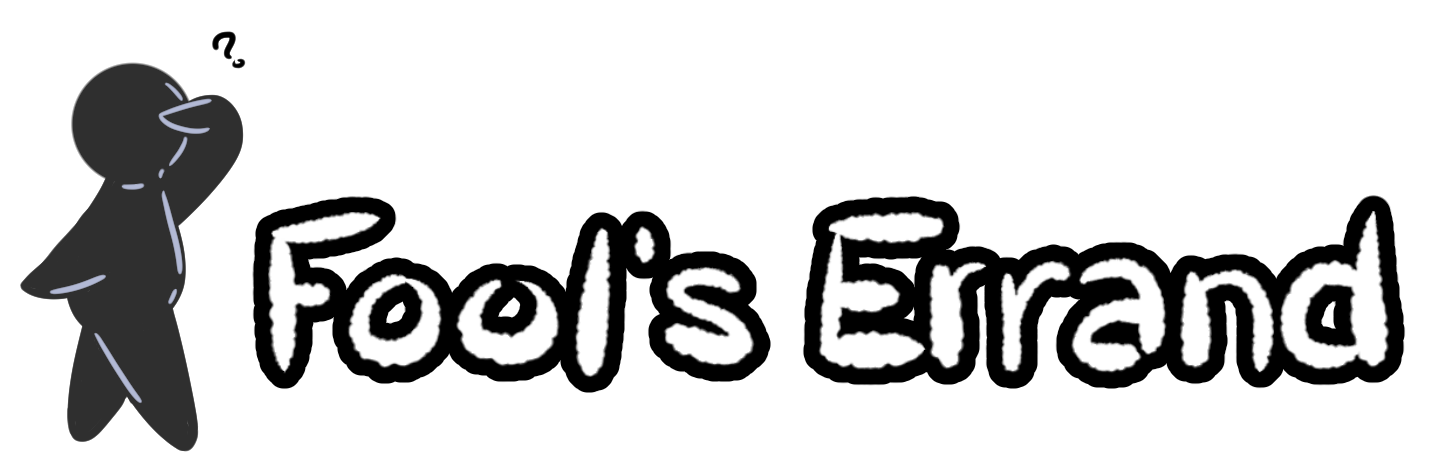 ?
Fool's Errand